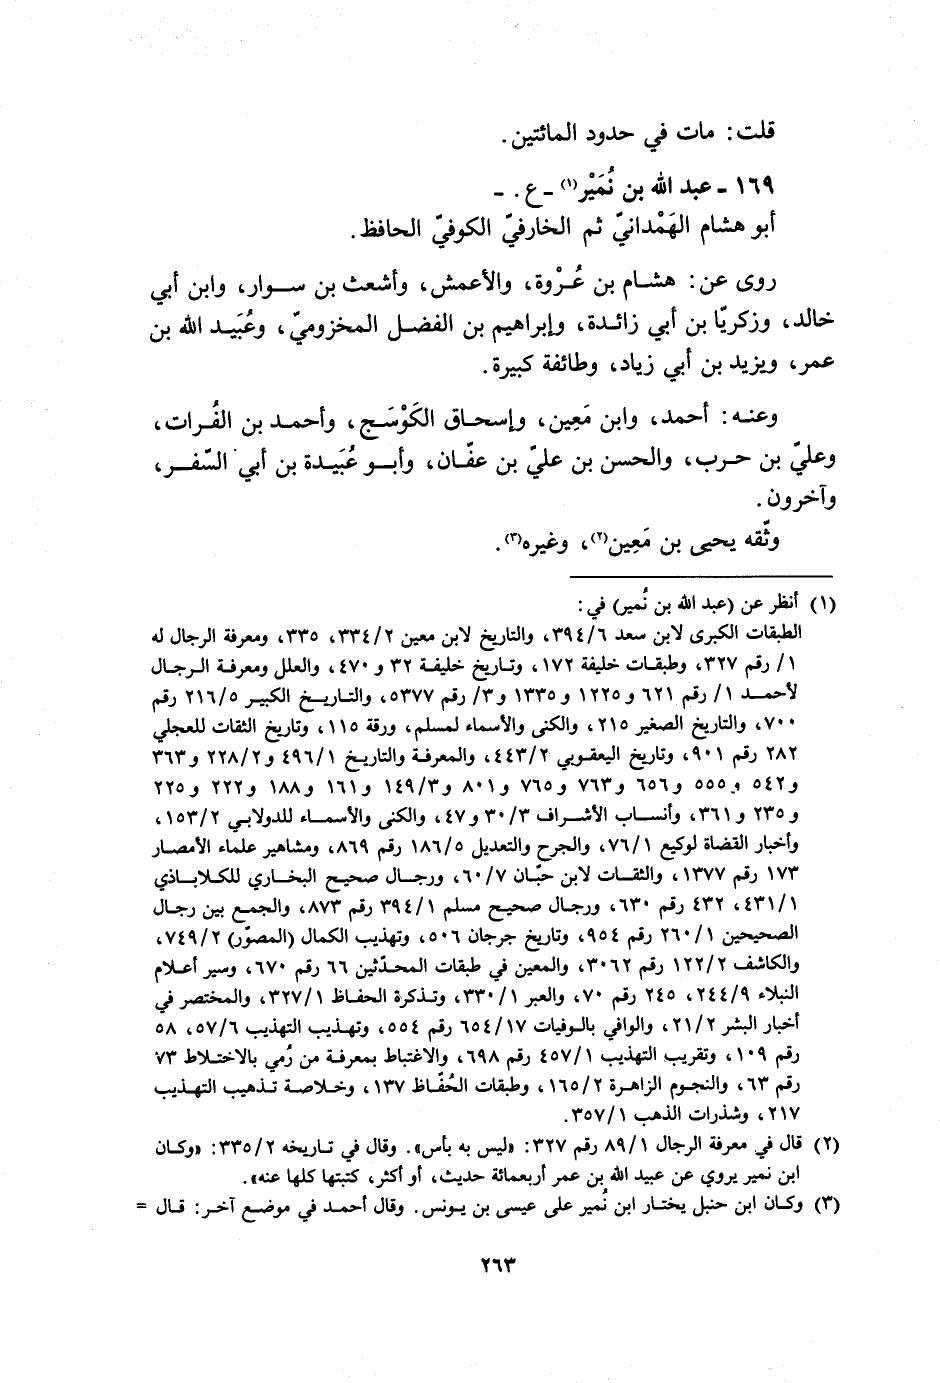 قلت: مات في حدود المائتين.
١٦٩ - عبد الله بن نُمَيْر(١) - ع. -
أبو هشام الهَمْدانيّ ثم الخارفيّ الكوفيّ الحافظ.
روى عن: هشام بن عُرْوة، والأعمش، وأشعث بن سوار، وابن أبي
خالد، وزكريّا بن أبي زائدة، وإبراهيم بن الفضل المخزوميّ، وعُبَيد الله بن
عمر، ويزيد بن أبي زياد، وطائفة كبيرة.
وعنه: أحمد، وابن مَعِين، وإسحاق الكَوْسَج، وأحمد بن الفُرات،
وعليّ بن حرب، والحسن بن عليّ بن عفّان، وأبو عُبَيدة بن أبي السّفر،
وآخرون.
وثّقه يحيى بن مَعِين(٢)، وغيره(٣).
(١) أنظر عن (عبد الله بن نُمير) في:
الطبقات الكبرى لابن سعد ٣٩٤/٦، والتاريخ لابن معين ٣٣٤/٢، ٣٣٥، ومعرفة الرجال له
١/ رقم ٣٢٧، وطبقات خليفة ١٧٢، وتاريخ خليفة ٣٢ و ٤٧٠، والعلل ومعرفة الرجال
لأحمد ١/ رقم ٦٢١ و ١٢٢٥ و ١٣٣٥ و ٣/ رقم ٥٣٧٧، والتاريخ الكبير ٢١٦/٥ رقم
٧٠٠، والتاريخ الصغير ٢١٥، والكنى والأسماء لمسلم، ورقة ١١٥، وتاريخ الثقات للعجلي
٢٨٢ رقم ٩٠١، وتاريخ اليعقوبي ٤٤٣/٢، والمعرفة والتاريخ ٤٩٦/١ و ٢٢٨/٢ و ٣٦٣
و ٥٤٢ و ٥٥٥ و ٦٥٦ و ٧٦٣ و ٧٦٥ و ٨٠١ و ١٤٩/٣ و ١٦١ و ١٨٨ و ٢٢٢ و ٢٢٥
و ٢٣٥ و ٣٦١، وأنساب الأشراف ٣٠/٣ و ٤٧، والكنى والأسماء للدولابي ١٥٣/٢،
وأخبار القضاة لوكيع ٧٦/١، والجرح والتعديل ١٨٦/٥ رقم ٨٦٩، ومشاهير علماء الأمصار
١٧٣ رقم ١٣٧٧، والثقات لابن حبّان ٦٠/٧، ورجال صحيح البخاري للكلاباذي
٤٣١/١، ٤٣٢ رقم ٦٣٠، ورجال صحيح مسلم ٣٩٤/١ رقم ٨٧٣، والجمع بين رجال
الصحيحين ٢٦٠/١ رقم ٩٥٤، وتاريخ جرجان ٥٠٦، وتهذيب الكمال (المصوّر) ٧٤٩/٢،
والكاشف ١٢٢/٢ رقم ٣٠٦٢، والمعين في طبقات المحدّثين ٦٦ رقم ٦٧٠، وسير أعلام
النبلاء ٢٤٤/٩، ٢٤٥ رقم ٧٠، والعبر ٣٣٠/١، وتذكرة الحفاظ ٣٢٧/١، والمختصر في
أخبار البشر ٢١/٢، والوافي بالوفيات ٦٥٤/١٧ رقم ٥٥٤، وتهذيب التهذيب ٥٧/٦، ٥٨
رقم ١٠٩، وتقريب التهذيب ٤٥٧/١ رقم ٦٩٨، والاغتباط بمعرفة من رُمي بالاختلاط ٧٣
رقم ٦٣، والنجوم الزاهرة ١٦٥/٢، وطبقات الحُفّاظ ١٣٧، وخلاصة تذهيب التهذيب
٢١٧، وشذرات الذهب ٣٥٧/١.
(٢) قال في معرفة الرجال ٨٩/١ رقم ٣٢٧: «ليس به بأس». وقال في تاريخه ٣٣٥/٢: «وكان
ابن نمير يروي عن عبيد الله بن عمر أربعمائة حديث، أو أكثر، كتبتها كلها عنه».
(٣) وكان ابن حنبل يختار ابن نُمير على عيسى بن يونس. وقال أحمد في موضع آخر: قال =
٢٦٣